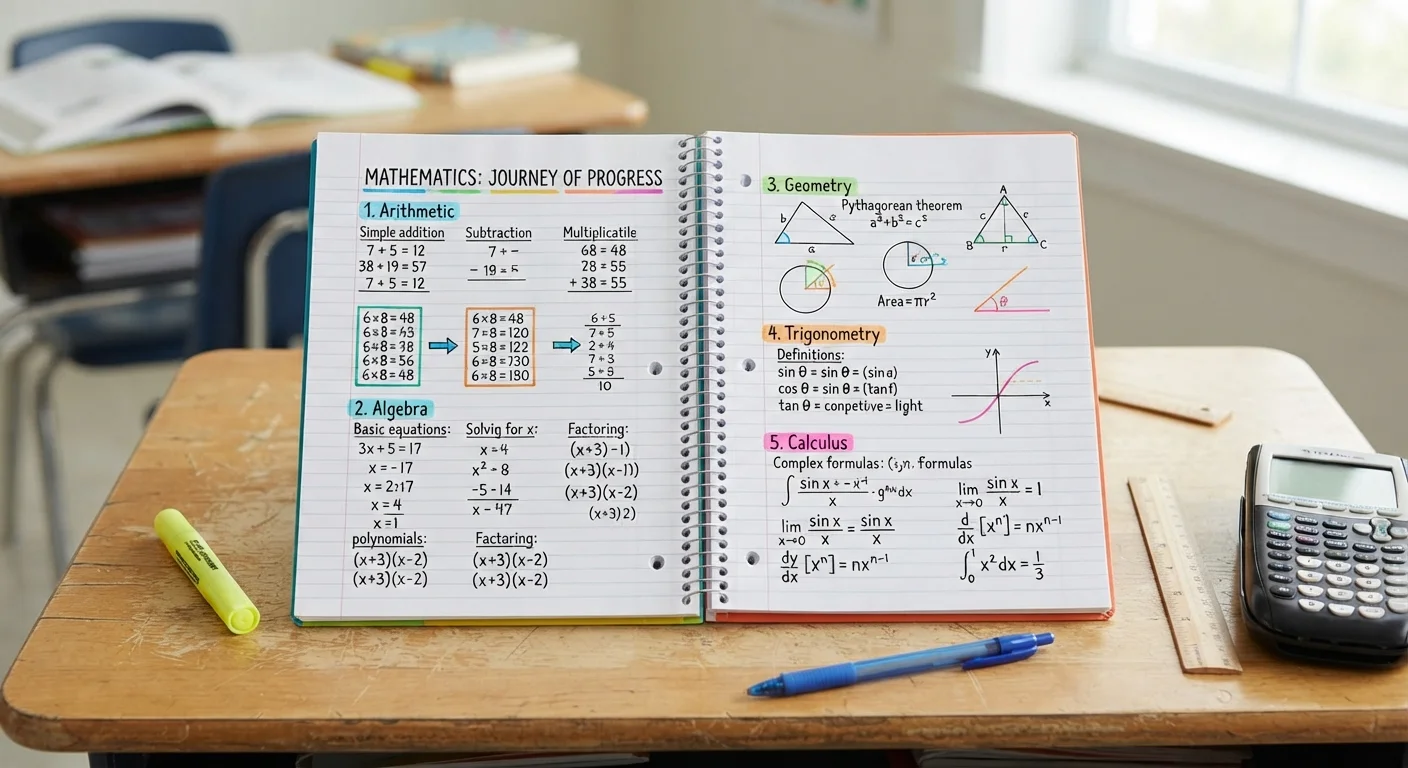 MATHEMATICS: JOURNEY OF PROGRESS
1. Arithmetic
Simple addition
7 + 5 = 12
38 + 19 = 57
7 + 5 = 12
Subtraction
7 ÷ −
− 19 =
Multiplicatile
68 = 48
28 = 55
+ 38 = 55
6×8=48
6×8=56
6×8=48
6×8=48
10
2. Algebra
Basic equations:
3x + 5 = 17
x = −17
x = 4
x = 1
Solvig for x:
−5 − 14
x − 47
Factoring:
(x+3)−1)
(x+3)(x−1))
(x+3)(x−2)
(x+3)2)
polynomials:
(x+3)(x−2)
(x+3)(x−2)
Factaring:
(x+3)(x−2)
(x+3)(x−2)
3. Geometry
Pythagorean theorem
b
a
A
c
B
r
C
Area = πr²
θ
4. Trigonometry
Definitions:
sin θ = sin θ = (sin a)
cos θ = sin θ = (tanf)
tan θ = conpetive = light
y
x
5. Calculus
Complex formulas: formulas
lim x→0 sin x / x = 1
lim x→0 sin x / x = sin x / x
d/dx [xⁿ] = nxⁿ⁻¹
dy/dx [xⁿ] = nxⁿ⁻¹
∫₀¹ x² dx = 1/3